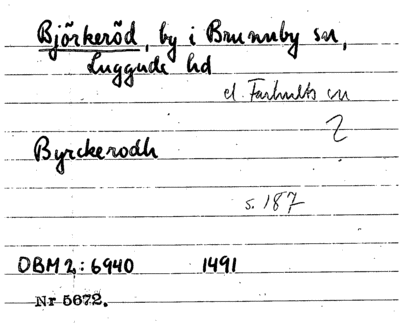 Björkeröd, by i Brunnby sn,
Luggude hd
el. Farhults sn
?
Byrckerodh
s. 187
DBM 2,: 6940 1491
Nr 5672.